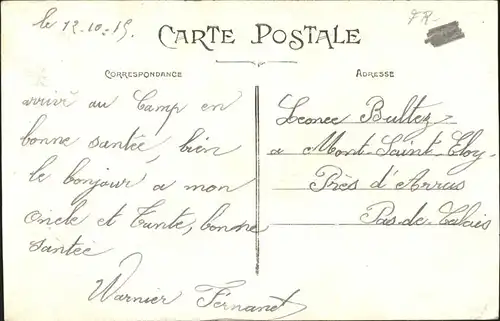 le 12-10-19.
FR-
CARTE POSTALE
CORRESPONDANCE
ADRESSE
arrivé au Camp en
bonne santée, bien
le bonjour a mon
oncle et Tante, bonne
santée
Warnier Fernand
Leonce Bultez
a Mont-Saint-Eloy
Près d'Arras
Pas-de-Calais